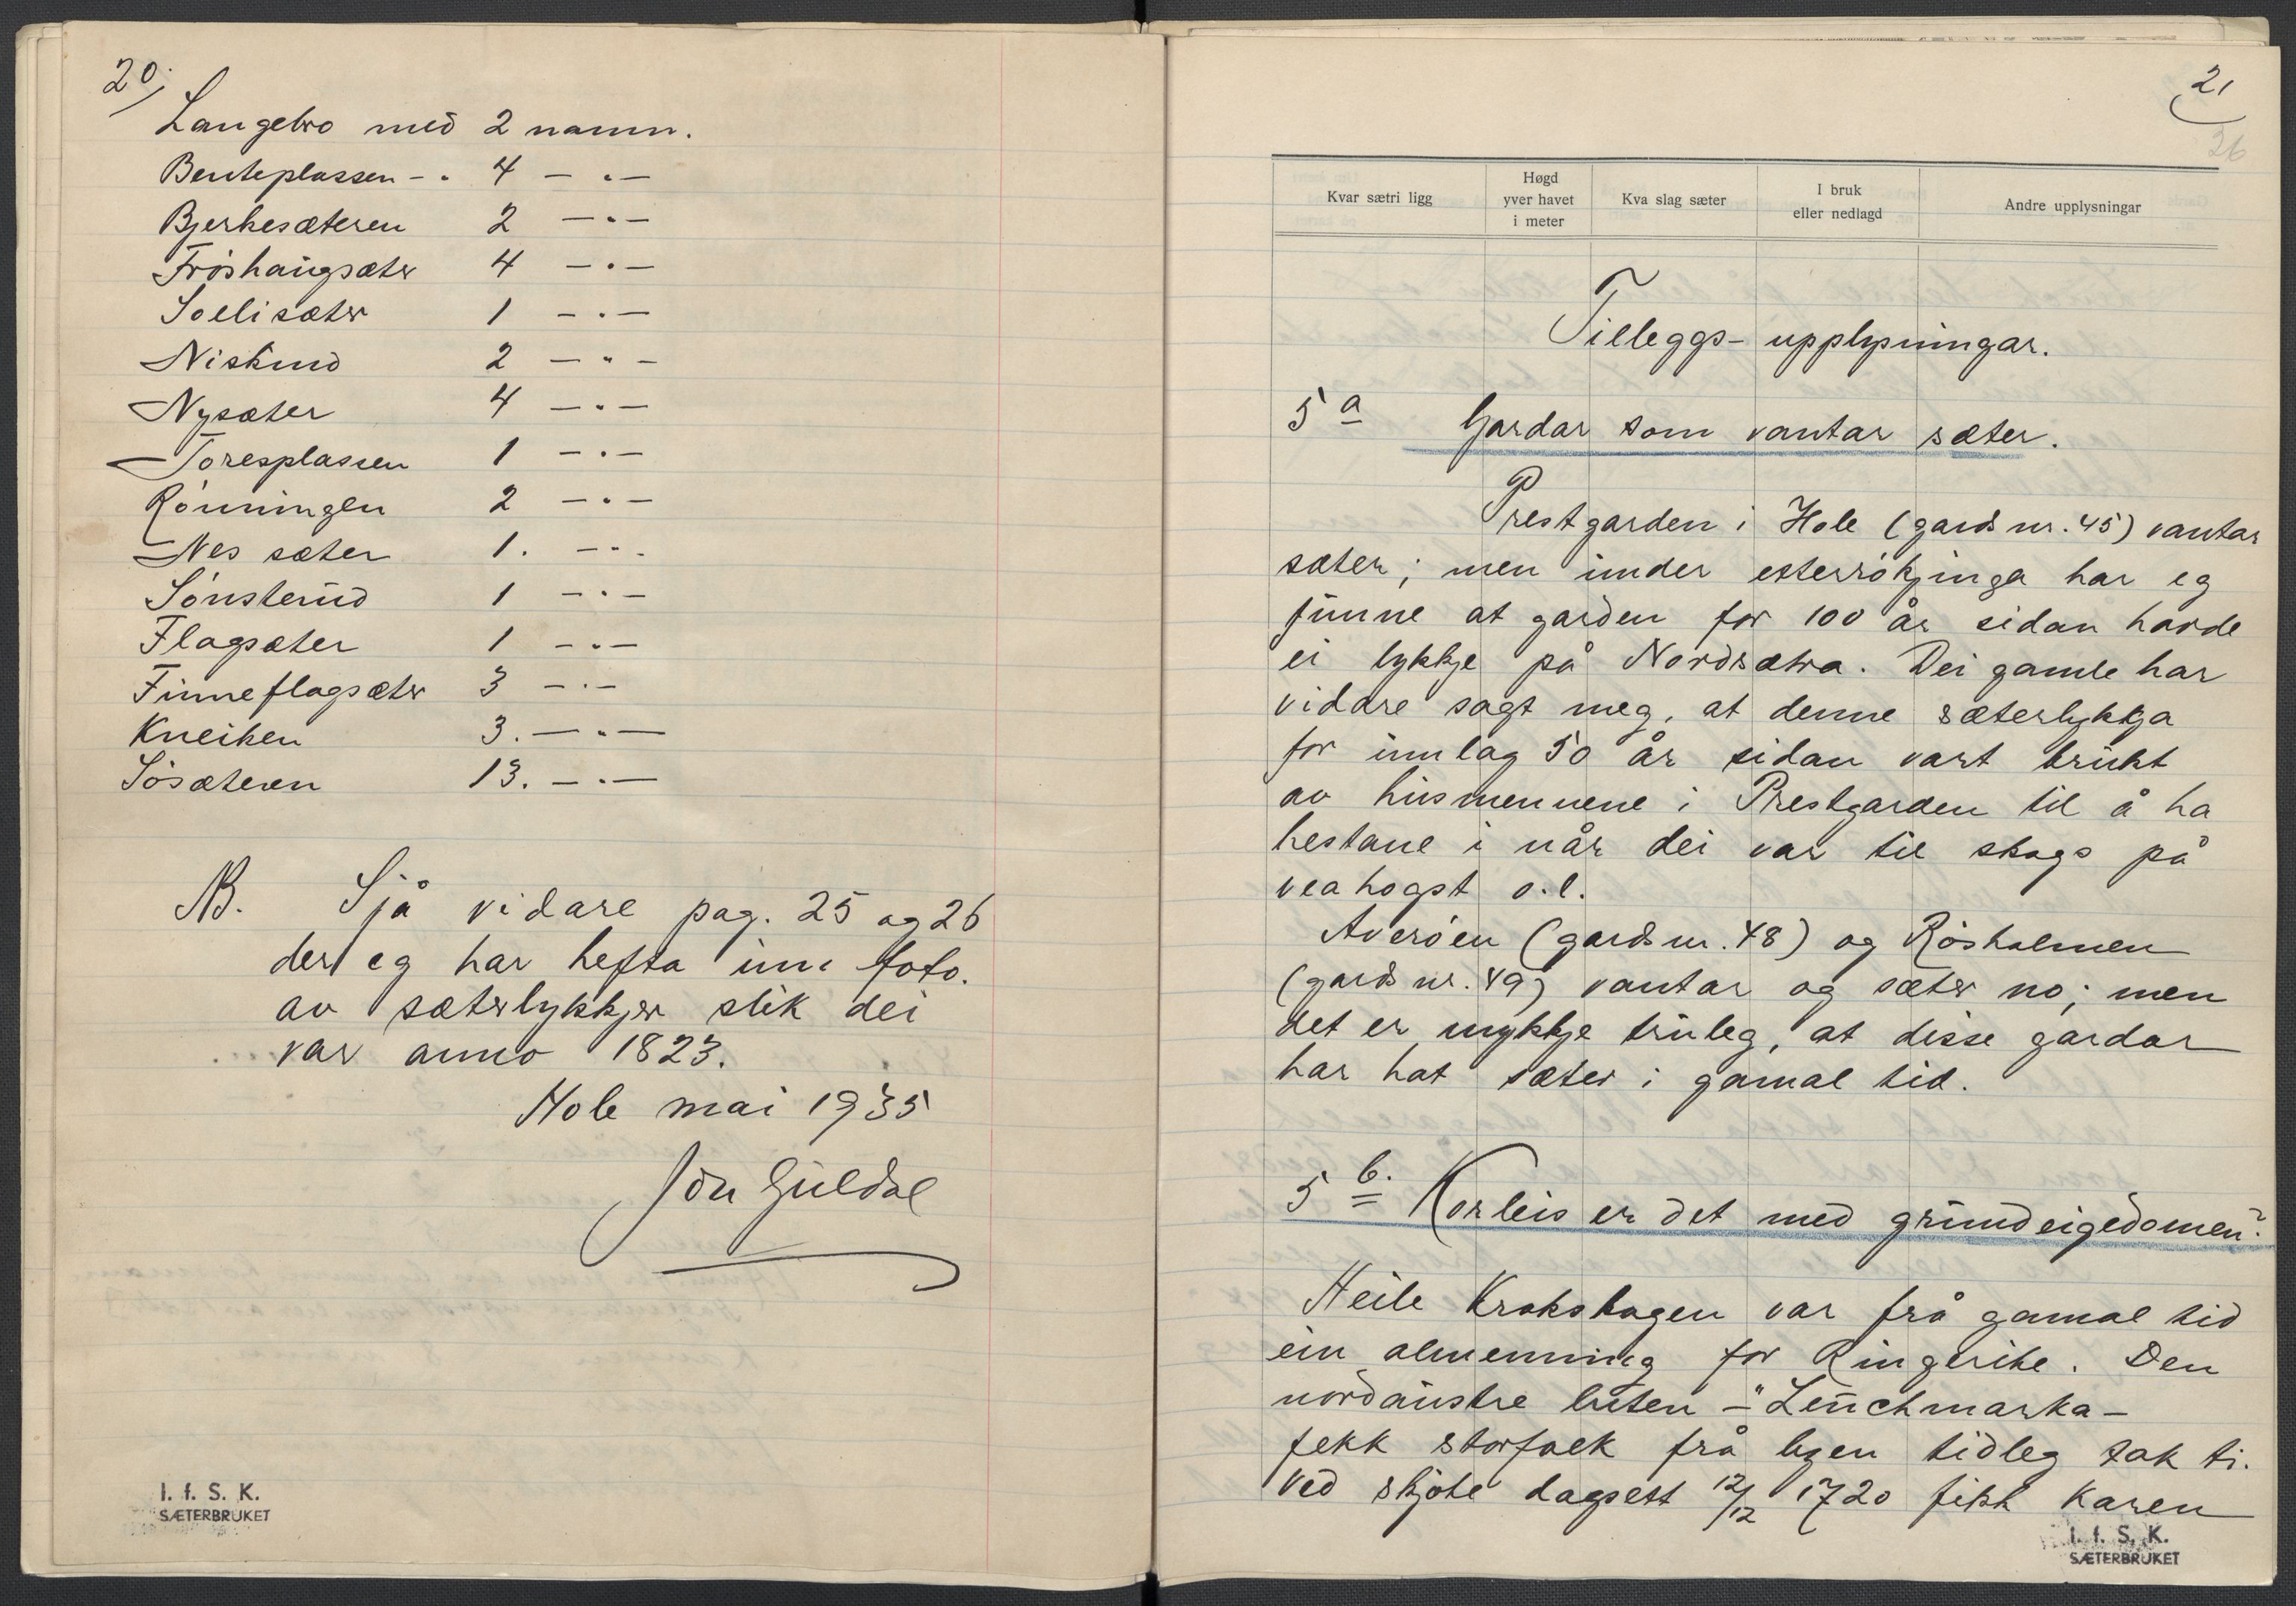 20.
Langebro med 2 namn.
Benteplassen -. 4 — . —
Bjerkesæteren 2 — . —
Frøshaugsæter 4 — . —
Soelisæter 1 — . —
Niskinn 2 — " —
Nysæter 4 — . —
Toresplassen 1 — . —
Rønningen 2 — . —
Nes sæter 1. — . —
Sønsterud 1 — . —
Flagsæter 1 — . —
Finneflagsæter 3 — . —
Kneiken 3. — . —
Søsæteren 13. — . —
NB. Sjå vidare pag. 25 og 26
der eg har hefta inn foto.
av sæterlykkjer slik dei
var anno 1823.
Hole mai 1935
Jon Guldal
I. f. S. K.
SÆTERBRUKET
21
36
Kvar sætri ligg
Høgd yver havet i meter
Kva slag sæter
I bruk eller nedlagd
Andre upplysningar
Tilleggs-upplysningar.
5 a Gardar som vantar sæter.
Prestgarden i Hole (gards nr. 45) vantar
sæter; men under etterrøkjinga har eg
funne at garden for 100 år sidan havde
ei lykkje på Nordsætra. Dei gamle har
viddre sagt meg, at denne sæterlykkja
for innlag 50 år sidan vart brukt
av husmennene i Prestgarden til å ha
hestane i når dei var til skogs på
veahogst o.l.
Averøen (gards nr. 48) og Røsholmen
(gards nr. 49) vantar og sæter no; men
det er mykkje truleg, at disse gardar
har hat sæter i gamal tid.
5 b. Korleis er det med grundeigedomen?
Heile Krokskogen var frå gamal tid
ein almenning for Ringerike. Den
nordaustre luten - "Leuchmarka -
fekk storfolk frå byen tidleg tak ti.
Ved skjøte dagsett 12/12 1720 fikk Karen
I. f. S. K.
SÆTERBRUKET